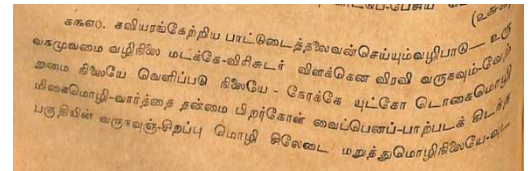 (உதாரண
௧௩௭0. கவியரங்கேற்றிய பாட்டுடைத்தலைவன்செய்யும்வழிபாடு— உரு
வகமுவமை வழிநிலை மடக்கே-விரிசுடர் விளக்கென விரவி வருகவும்-வேற்
றுமை நிலையே வெளிப்படு நிலையே - நோக்கே யுட்கோ டொகைமொழி
மிகைமொழி-வார்த்தை தன்மை பிறர்கோள் வைப்பெனப்-பாற்படக் கிடந்த
பகுதியின் வருகவுஞ்-சிறப்பு மொழி சிலேடை மறுத்துமொழிநிலையே-